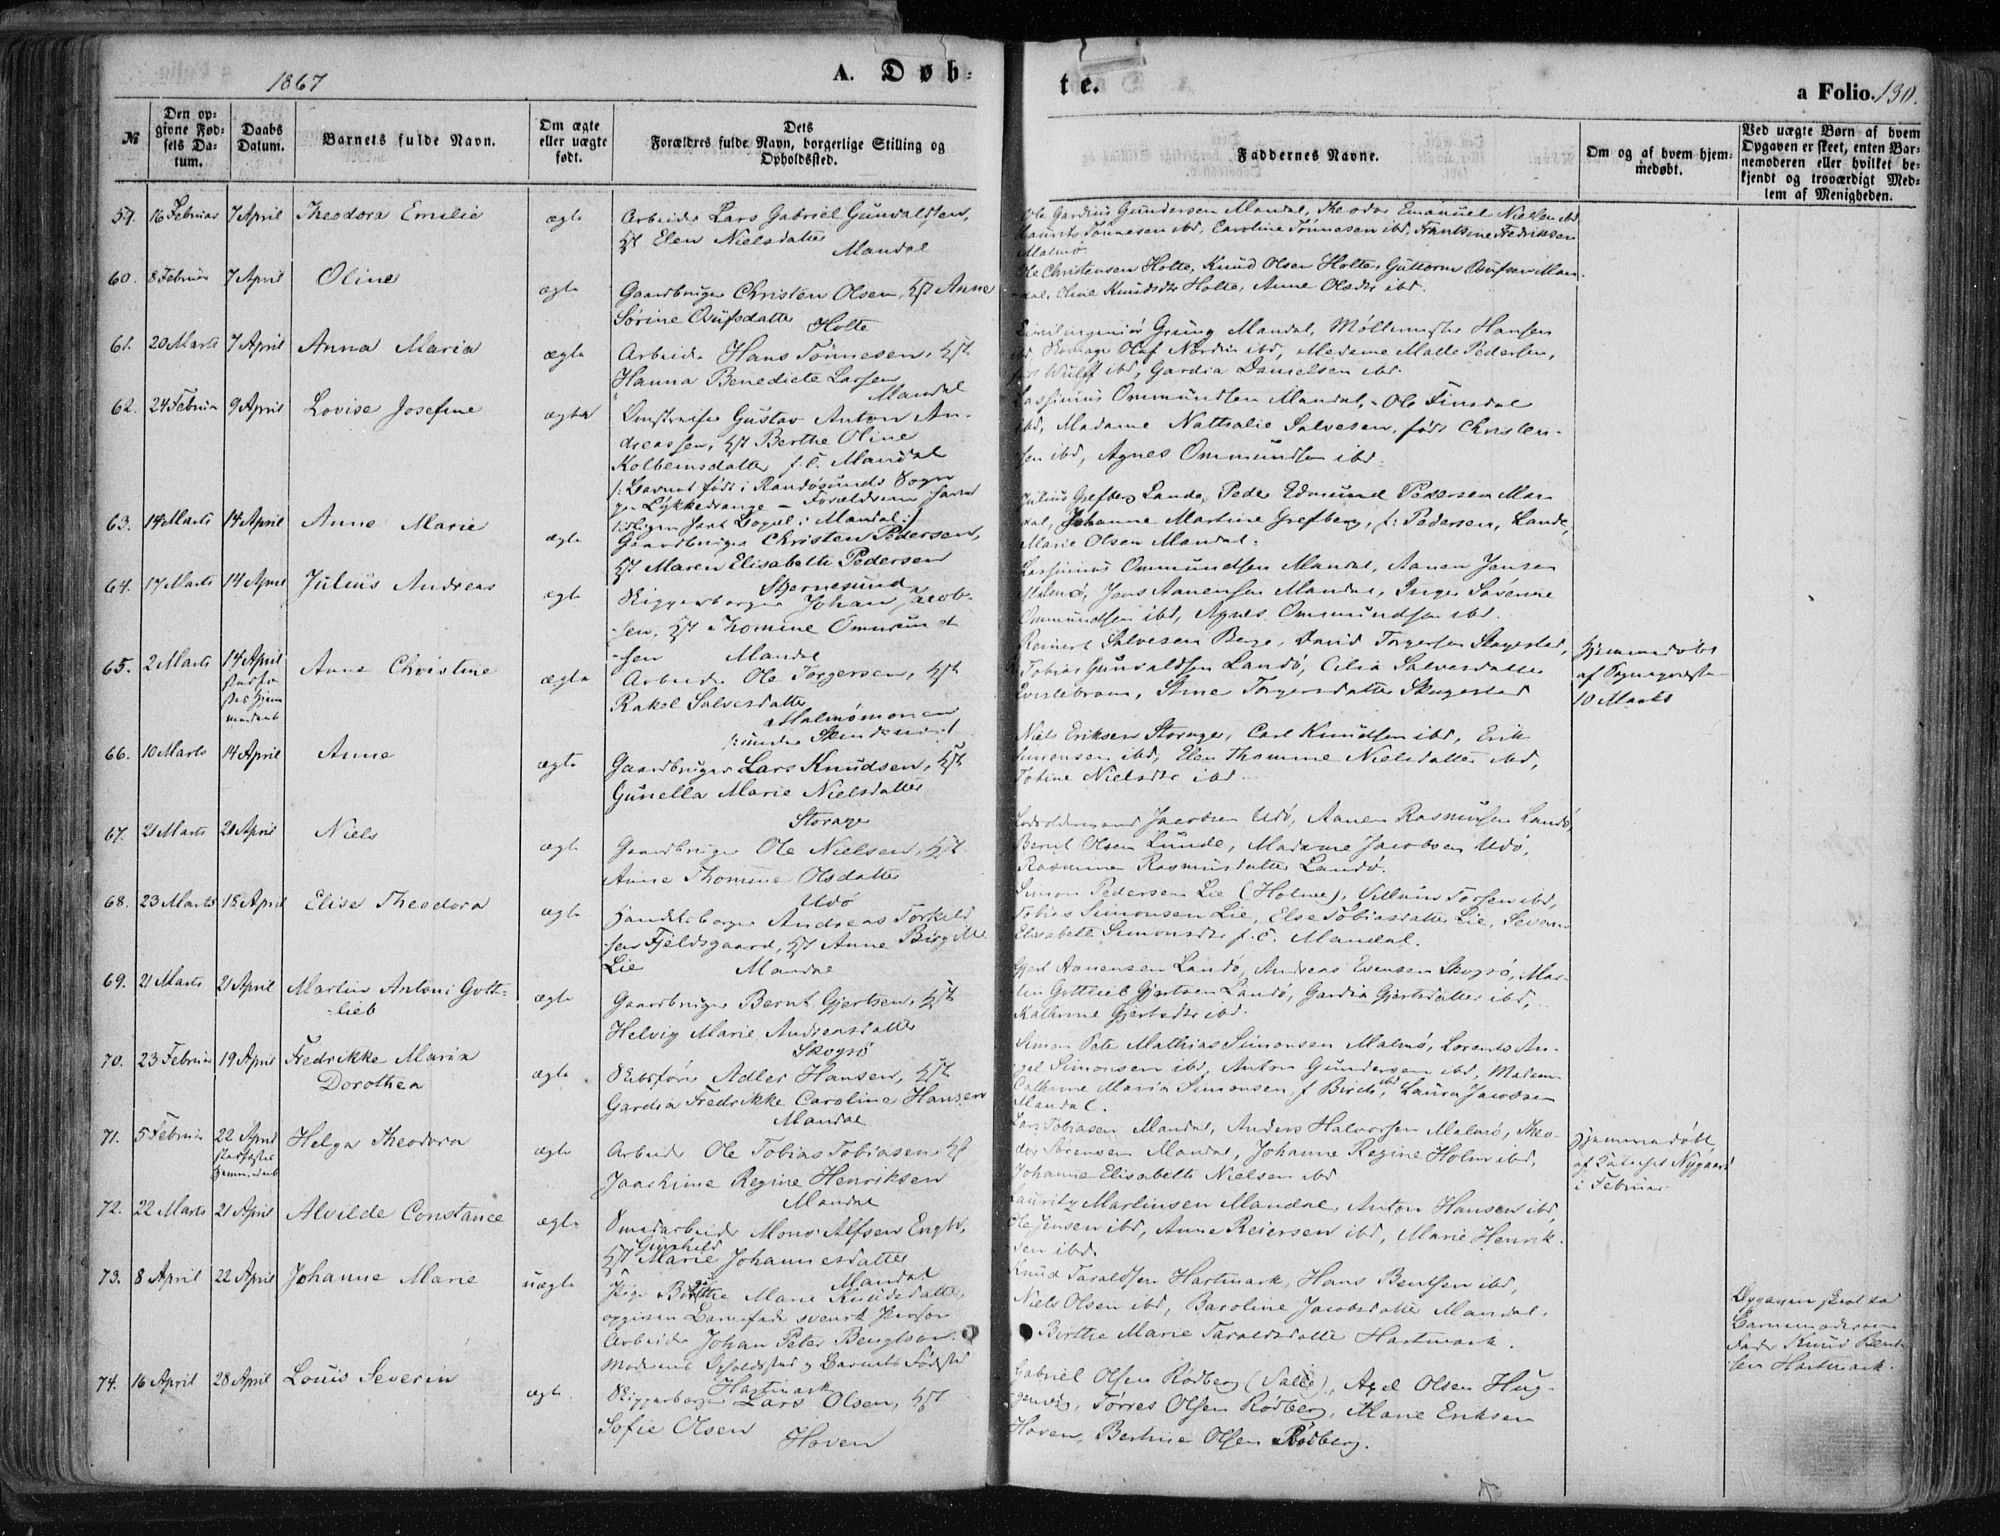 1867
A. Døb-
te.
a Folio 130.
№
Den op-
givne Fød-
sels Da-
tum.
Daabs
Datum.
Barnets fulde Navn.
Om ægte
eller uægte
født.
Dets
Forældres fulde Navn, borgerlige Stilling og
Opholdssted.
Faddernes Navne.
Om og af hvem hjem-
medøbt.
Ved uægte Børn af hvem
Opgaven er skeet, enten Bar-
nemoderen eller hvilket be-
kjendt og troværdigt Med-
lem af Menigheden.
59. 16 Februar 7 April Theodora Emilie ægte
Arbeider Lars Gabriel Gunvaldsen,
Hst Elen Nielsdatter
Mandal
Ole Gardius Gundersen Mandal, Theodor Emanuel Nielsen ibd
Tønnesen ibd, Caroline Tønnesen ibd, Frantsine Fredriksen
Malmø
60. 8 Februar 7 April Oline ægte
Gaardbruger Christen Olsen, Hst Anne
Sørine
Holte
Ole Christensen Holte, Knud Olsen Holte, Guttorm Man-
dal, Oline Knudsdtr Holte, Anne Olsdtr ibd.
61. 20 Marts 7 April Anna Maria ægte
Arbeider Hans Tønnesen, Hst
Hanna Benedicte Larsen
Mandal
Civilingeniør Grung Mandal, Møllemester Hansen
ibd, Olaf Nordin ibd, Madame Malle Pedersen,
Wulff ibd, Gardia Danielsen ibd.
62. 24 Februar 9 April Lovise Josefine ægte
Gustav Anton An-
dreassen, Hst Berthe Oline
Kolbeinsdatter f.C. Mandal
/: Barnet født i Randøsunds Sogn
Ommundsen Mandal, Ole Finsdal
ibd, Madame Nathalie Salvesen, født Christen-
sen ibd, Agnes Ommundsen ibd.
63. 14 Marts 14 April Anne Marie ægte
Gaardbruger Christen Pedersen,
Hst Maren Elisabeth Pedersen
Skjernesund
Julius Grefberg Lande, Peder Edmund Pedersen Man-
dal, Johanne Martine Grefberg, f: Pedersen, Lande,
Marie Olsen Mandal.
64. 17 Marts 14 April Julius Andreas ægte
Skipperborger Johan Jacob-
sen, Hst Thomine Ommund-
sen Mandal
Ommundsen Mandal, Aanen Jensen
Malmø, Jens Aanensen Mandal, Inger Sørine
Ommundsen ibd, Agnes Ommundsen ibd.
65. 2 Marts 14 April
stadfæ-
stes hjem-
medaab
Anne Christine ægte
Arbeider Ole Torgersen, Hst
Rakel Salvesdatter
Malmømonen
Reinert Salvesen Berge, David Torgersen Skagestad,
Tobias Gunvaldsen Landø, Cilia Salvesdatter
Stine Torgersdatter Skagestad
Hjemmedøbt
af Sognepræsten
10 Marts
66. 10 Marts 14 April Anne ægte
Gaardbruger Lars Knudsen, Hst
Gunella Marie Nielsdatter
Storage
Niels Eriksen Storage, Carl Knudsen ibd, Erik
Simonsen ibd, Elen Thomine Nielsdatter ibd,
Tobine Nielsdtr ibd.
67. 21 Marts 20 April Niels ægte
Gaardbruger Ole Nielsen, Hst
Anne Thomine Olsdatter
Udø
Jacobsen Udø, Aanen Rasmussen Landø,
Bernt Olsen Lunde, Madame Jacobsen Udø,
Rasmine Rasmusdatter Landø.
68. 23 Marts 18 April Elise Theodora ægte
Handelsborger Andreas Torkild-
sen Fjeldsgaard, Hst Anne Birgitte
Lie Mandal
Simon Pedersen Lie (Holme), Villum Torsen ibd,
Tobias Simonsen Lie, Else Tobiasdatter Lie,
Elisabeth Simonsdtr f.C. Mandal.
69. 21 Marts 21 April Martin Antoni Gott-
lieb ægte
Gaardbruger Bernt Gjertsen, Hst
Helvig Marie Andreasdatter
Skogsø
Gjert Aanensen Landø, Andreas Evensen Skogsø, Mar-
tin Gottlieb Gjertsen Landø, Gardia Gjertsdatter ibd,
Kathrine Gjertsdtr ibd.
70. 23 Februar 19 April Fredrikke Maria
Dorothea ægte
Skibsfører Adler Hansen, Hst
Gardia Fredrikke Caroline Hansen
Mandal
Simon Peter Mathias Simonsen Malmø, Lorents An-
Simonsen ibd, Anton Gundersen ibd, Madam
Cathrine Maria Simonsen, f Birch ibd, Laura Jacobsen
Mandal.
71. 5 Februar 22 April
stadfæstet
hjemmedaab
Helga Theodora ægte
Arbeider Ole Tobias Tobiasen, Hst
Joachime Regine Henriksen
Mandal
Lars Tobiasen Mandal, Anders Halvorsen Malmø, Theo-
dor Sørensen Mandal, Johanne Regine Holm ibd,
Johanne Elisabeth Nielsen ibd
Hjemmedøbt
af Nygaard
i Februar
72. 22 Marts 21 April Alvilde Constance ægte
Mons Alfsen
Hst Gunhild Marie Johannesdatter
Mandal
Lauritz Martinsen Mandal, Anton Hansen ibd,
Ole Jensen ibd, Anne Reiersen ibd, Marie Henrik-
sen ibd.
73. 8 April 22 April Johanne Marie uægte
Pige Berthe Marie Knudsdatter,
opgiven Barnefader svensk Person
Arbeider Johan Peter Bengtson
Moderens Opholdssted og Barnets Fødested
Hartmark
Knud Taraldsen Hartmark, Hans Bentsen ibd,
Niels Olsen ibd, Baroline Jacobsdatter Mandal,
Birthe Marie Taraldsdatter Hartmark.
Opgaven skeet ved
Barnemoderens
Fader Knud Bent-
sen Hartmark.
74. 16 April 28 April Louis Severin ægte
Skipperborger Lars Olsen, Hst
Sofie Olsen
Hoven
Gabriel Olsen Rødberg, Axel Olsen Hug-
Tørres Olsen Rødberg, Marie Eriksen
Hoven, Bertine Olsen Rødberg.